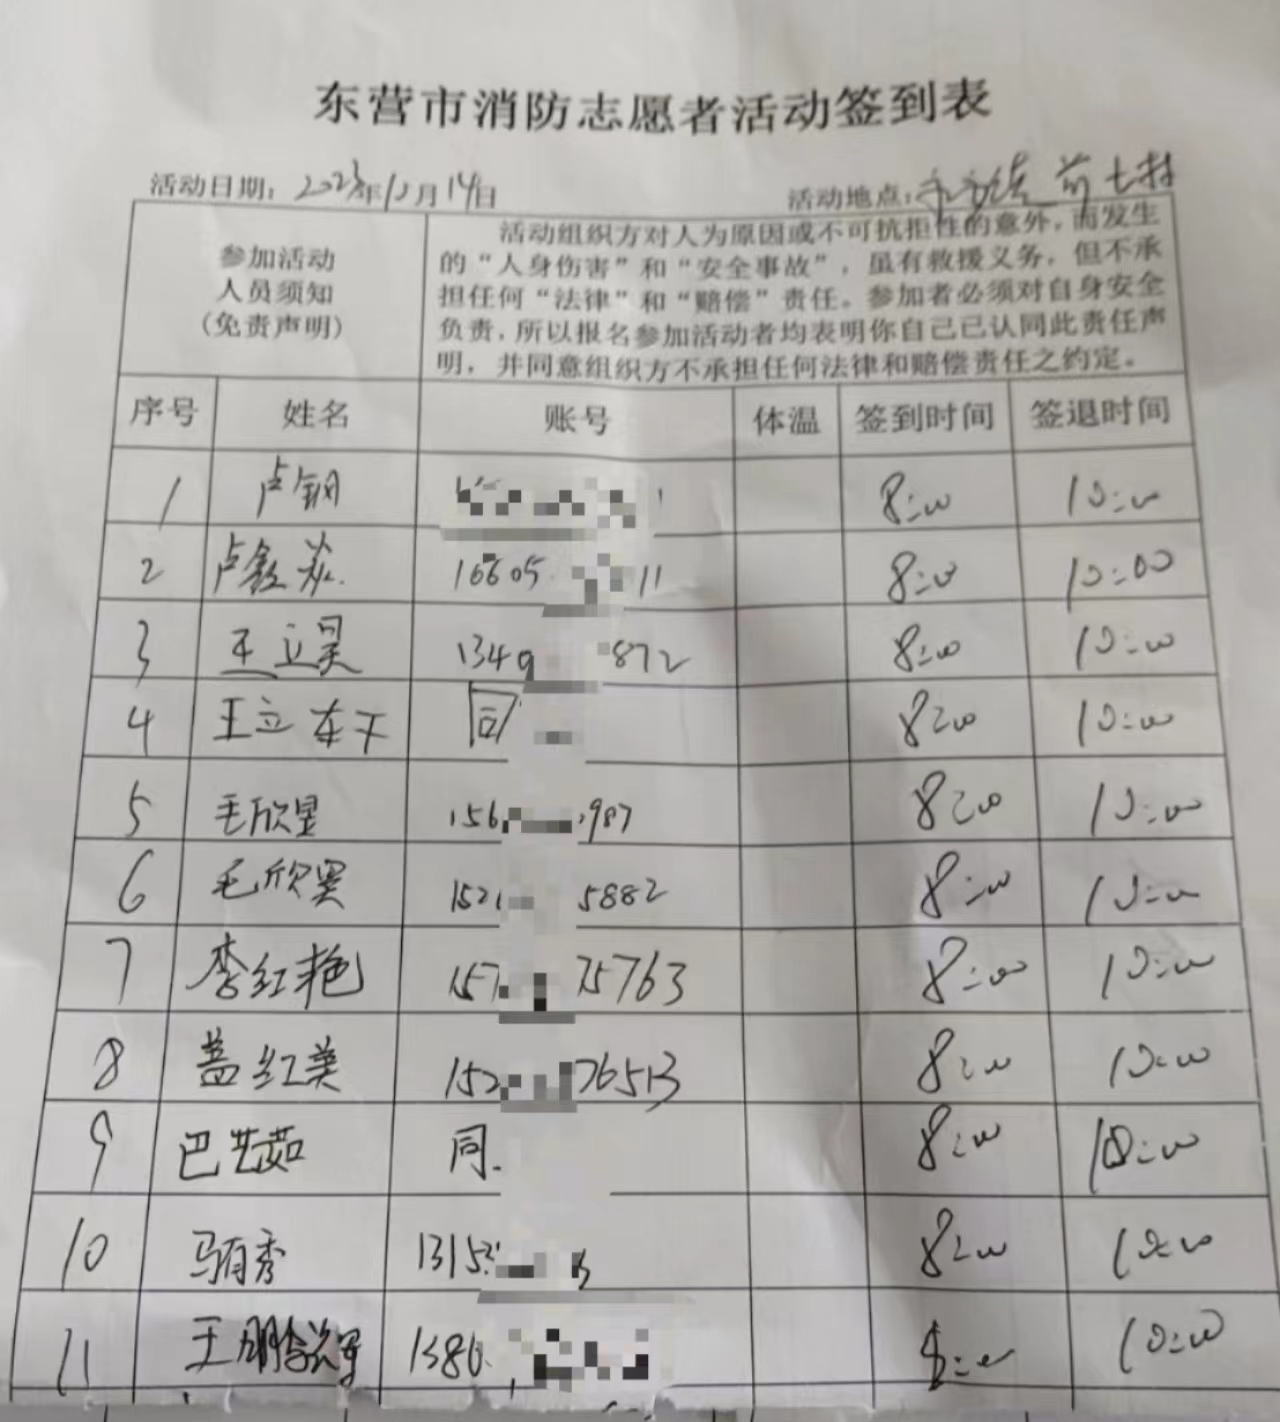 东营市消防志愿者活动签到表
活动日期：2023年12月14日 活动地点： 前七村
参加活动
人员须知
（免责声明）
活动组织方对人为原因或不可抗拒性的意外，而发生
的“人身伤害”和“安全事故”，虽有救援义务，但不承
担任何“法律”和“赔偿”责任。参加者必须对自身安全
负责，所以报名参加活动者均表明你自己已认同此责任声
明，并同意组织方不承担任何法律和赔偿责任之约定。
序号 姓名 账号 体温 签到时间 签退时间
1 卢钢 8:00 10:00
2 卢鑫 16605 11 8:00 10:00
3 王立昊 1349 872 8:00 10:00
4 王立 同 8:00 10:00
5 毛欣昱 156 987 8:00 10:00
6 毛欣昊 152 5882 8:00 10:00
7 李红艳 157 75763 8:00 10:00
8 盖红美 152 76513 8:00 10:00
9 巴艺茹 同. 8:00 10:00
10 马有秀 13153 8:00 10:00
11 王鹏 1386 8:00 10:00